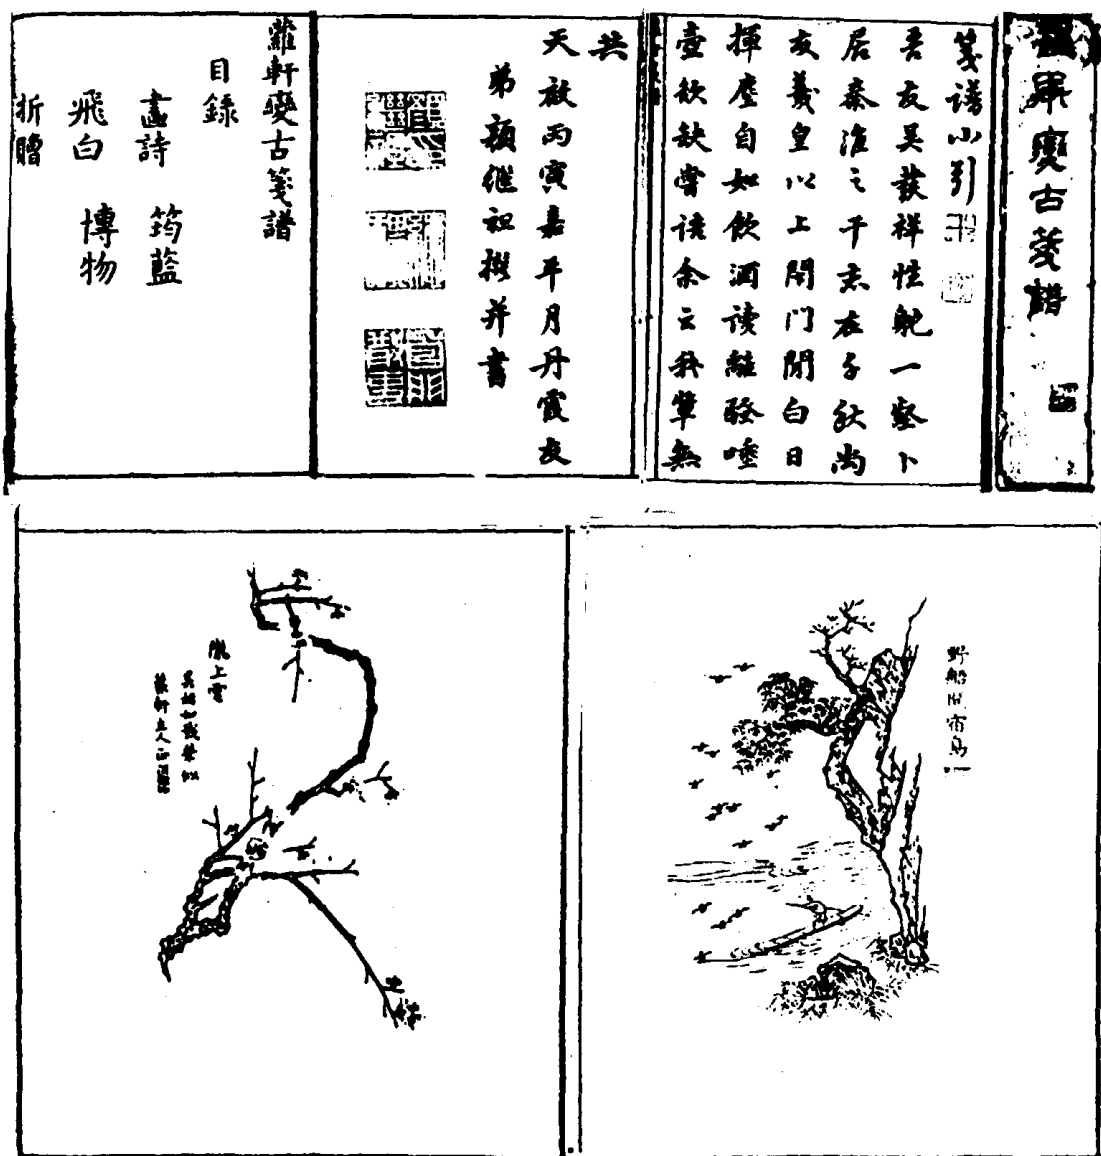 蘿軒變古箋譜
箋譜小引
吾友吳發祥性躭一壑卜
居秦淮之干志在千秋尚
友羲皇以上閉門閒白日
揮麈自如飲酒讀離騷唾
壺欲缺嘗語余云我輩無
共
天啟丙寅嘉平月丹霞友
弟顏繼祖撰并書
蘿軒變古箋譜
目錄
畫詩 筠藍
飛白 博物
折贈
上雲
野船